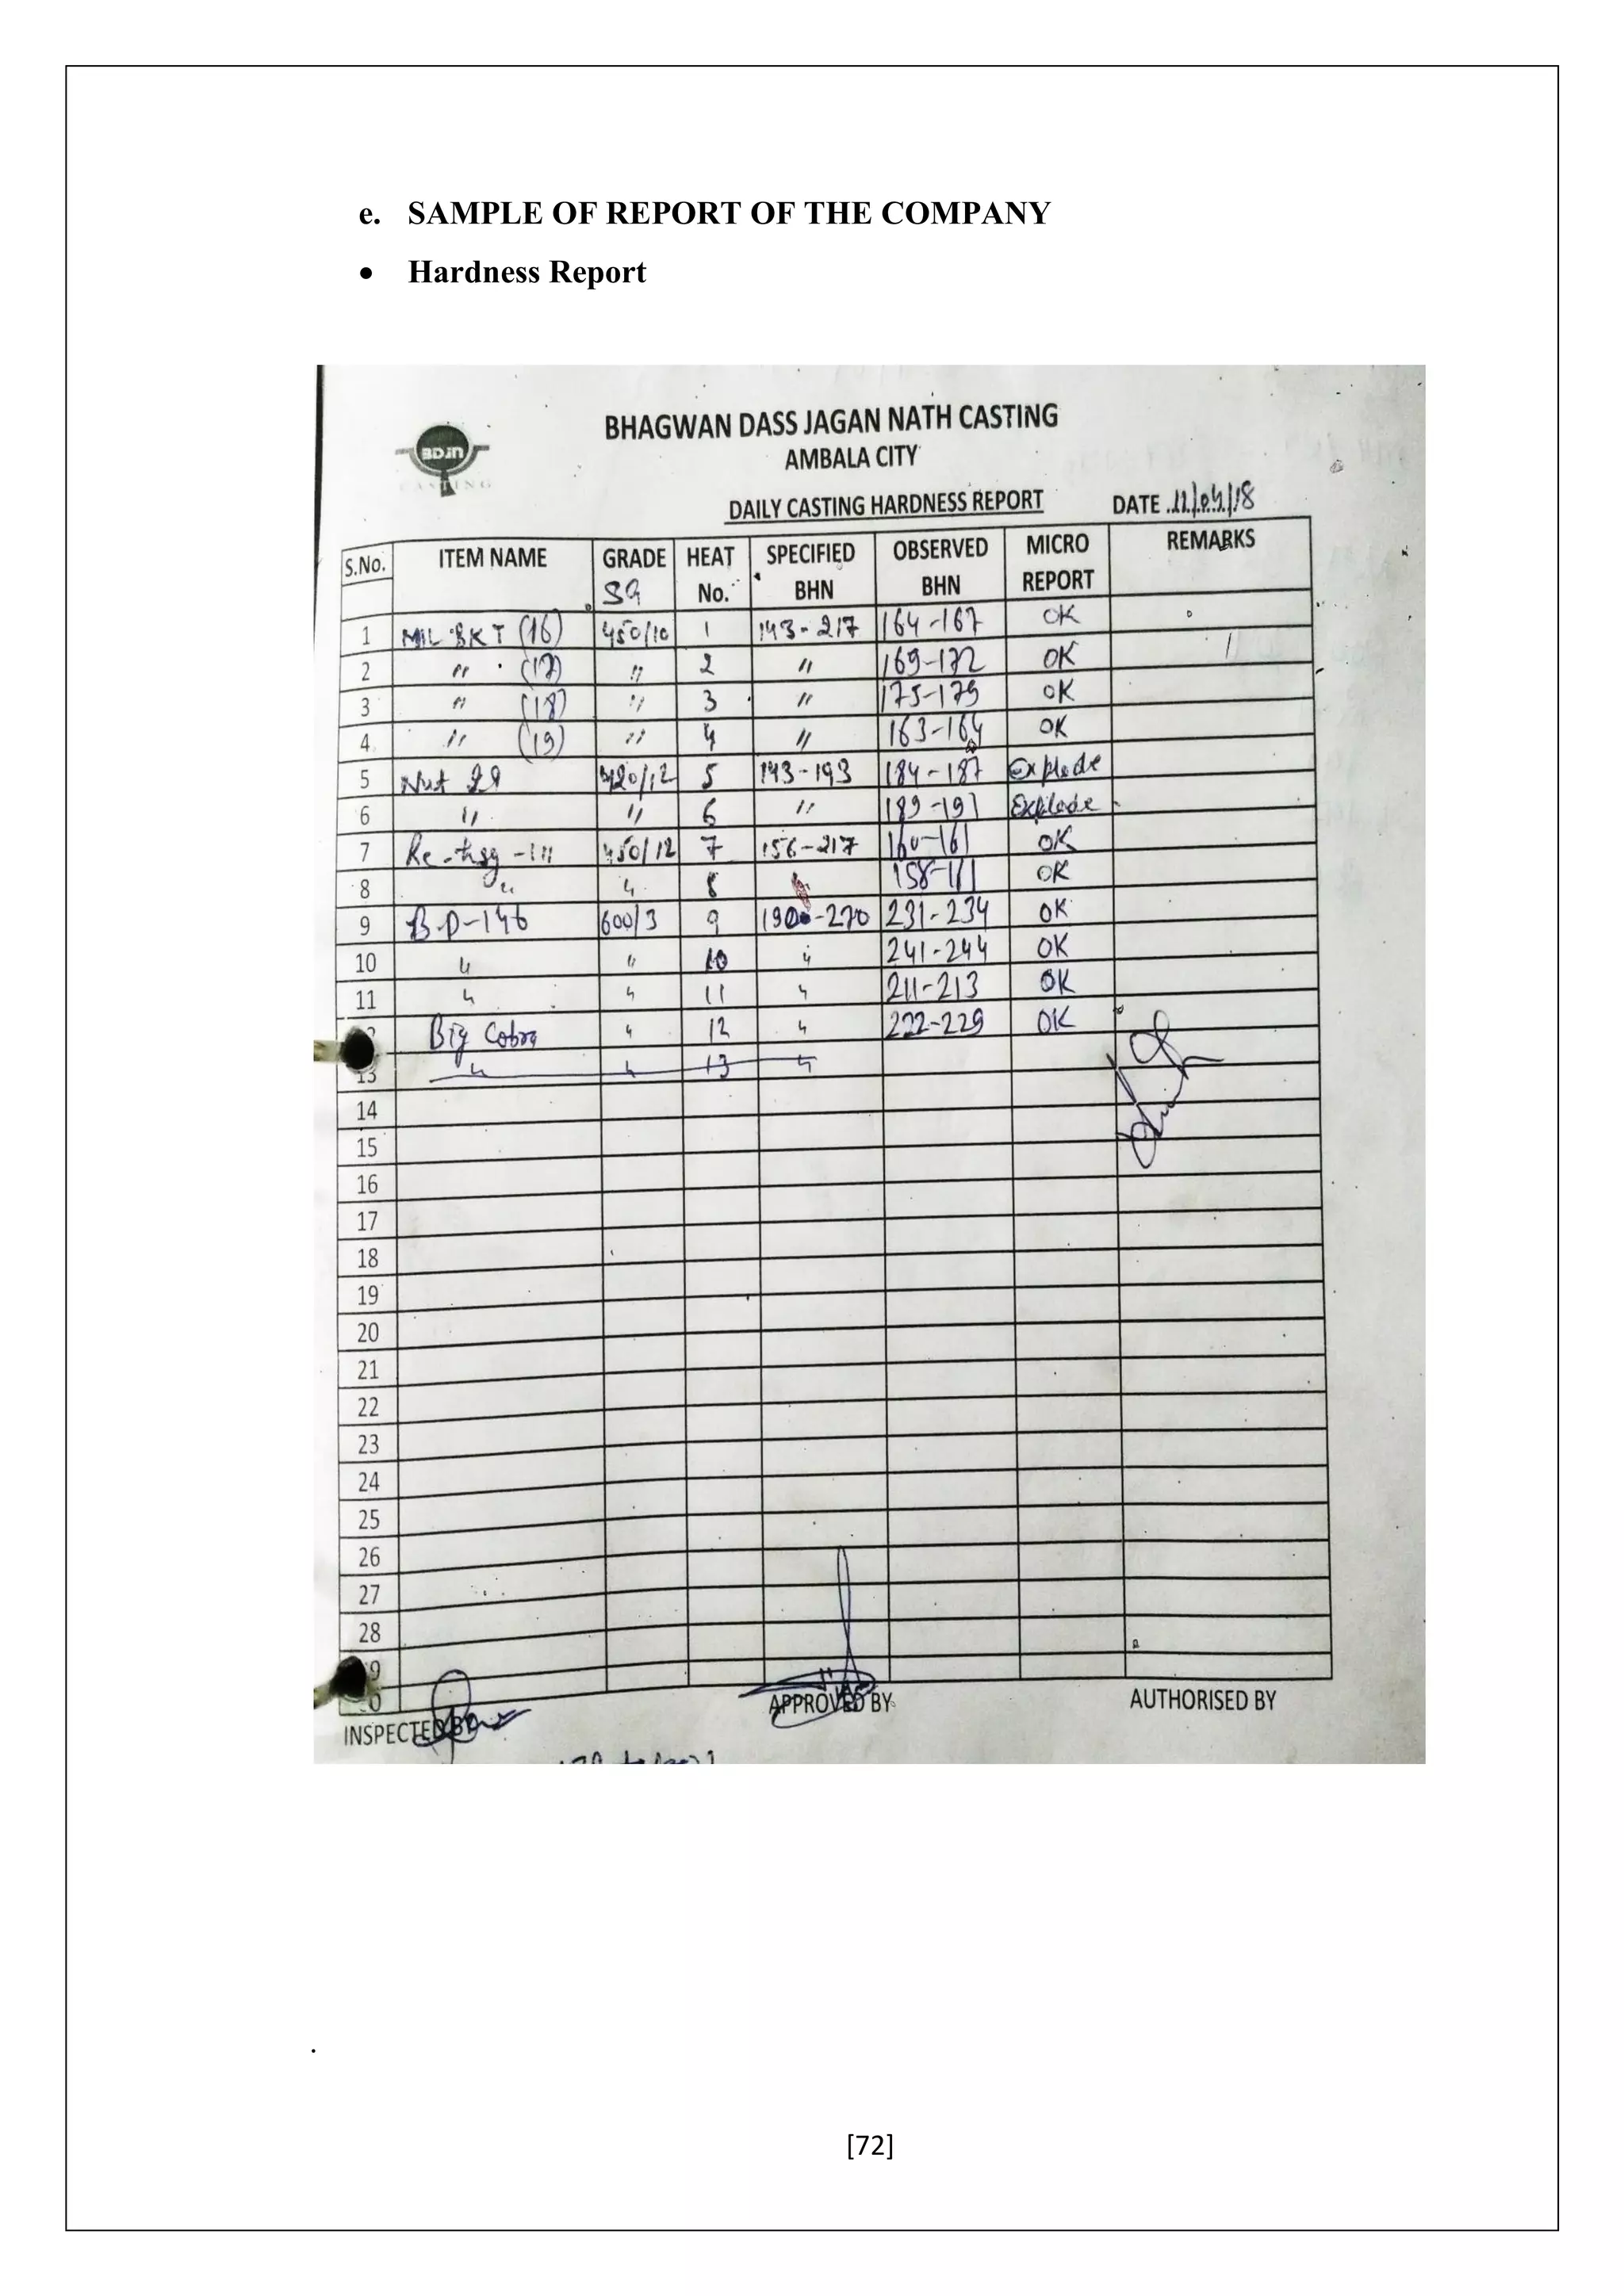 e. SAMPLE OF REPORT OF THE COMPANY
• Hardness Report
BHAGWAN DASS JAGAN NATH CASTING
AMBALA CITY
BDJN
CASTING
DAILY CASTING HARDNESS REPORT DATE
S.No. ITEM NAME GRADE HEAT No. SPECIFIED BHN OBSERVED BHN MICRO REPORT REMARKS
SG
1 MIL BKT (16) 450/10 1 143-217 164-167 OK
2 〃 (17) 〃 2 〃 169-172 OK
3 〃 (18) 〃 3 〃 175-179 OK
4 〃 (19) 〃 4 〃 163-164 OK
5 Nut 420/12 5 143-193 184-187 Explode
6 〃 〃 6 〃 189-191 Explode
7 450/12 7 156-217 160-161 OK
8 〃 〃 8 OK
9 B.D-146 600/3 9 231-234 OK
10 〃 〃 10 〃 241-244 OK
11 〃 〃 11 〃 211-213 OK
Big Cobra 〃 12 〃 222-229 OK
13 〃 〃 13 〃
14
15
16
17
18
19
20
21
22
23
24
25
26
27
28
INSPECTED BY APPROVED BY AUTHORISED BY
.
[72]